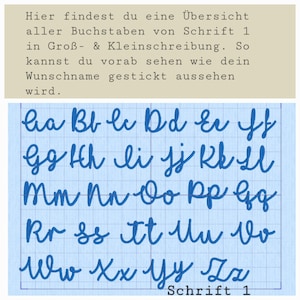 Hier findest du eine Übersicht
aller Buchstaben von Schrift 1
in Groß- & Kleinschreibung. So
kannst du vorab sehen wie dein
Wunschname gestickt aussehen
wird.
Aa Bb Cc Dd Ee Ff
Gg Hh Ii Jj Kk Ll
Mm Nn Oo Pp Qq
Rr Ss Tt Uu Vv
Ww Xx Yy Zz
Schrift 1